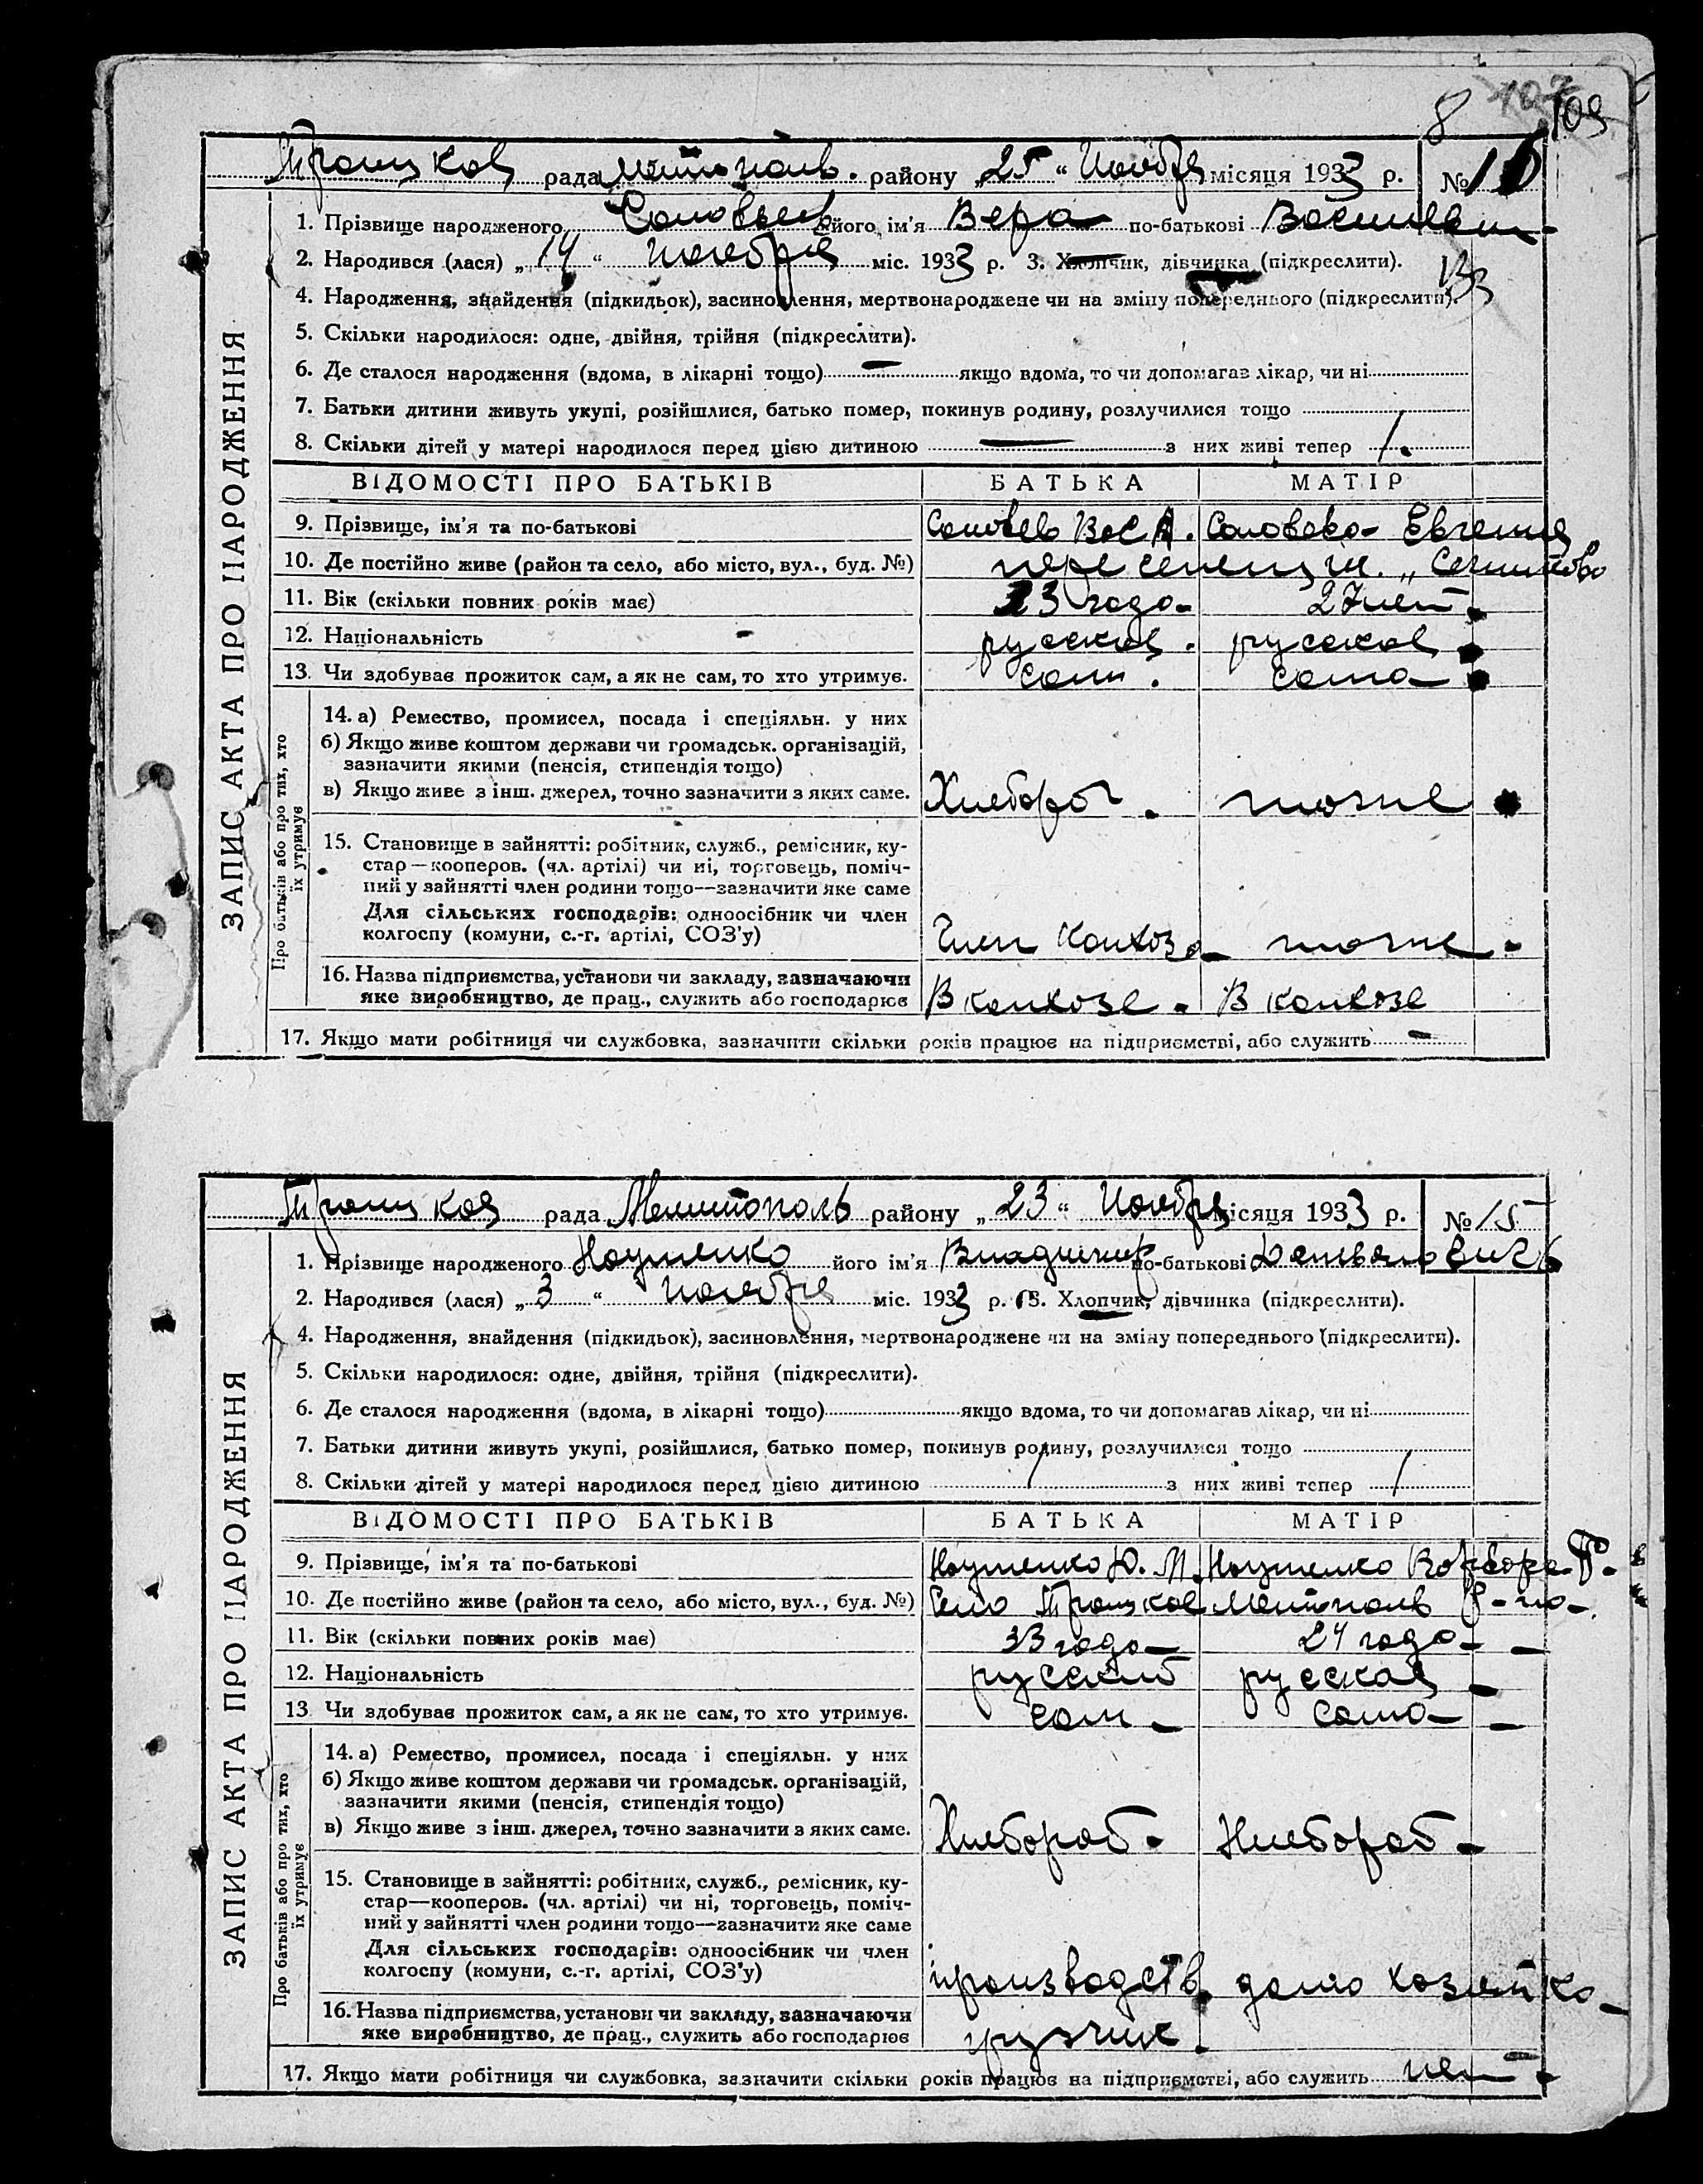 8 107 109
Троицкая рада Мелитополь. району „25“ Ноября місяця 1933 р. № 16
1. Прізвище народженого Соловьев його ім'я Вера по-батькові
2. Народився (лася) „14“ ноября міс. 1933 р. 3. Хлопчик, дівчинка (підкреслити).
4. Народження, знайдення (підкидьок), засиновлення, мертвонароджене чи на зміну попереднього (підкреслити).
5. Скільки народилося: одне, двійня, трійня (підкреслити).
6. Де сталося народження (вдома, в лікарні тощо) — якщо вдома, то чи допомагав лікар, чи ні
7. Батьки дитини живуть укупі, розійшлися, батько помер, покинув родину, розлучилися тощо
8. Скільки дітей у матері народилося перед цією дитиною — з них живі тепер 1.
ВІДОМОСТІ ПРО БАТЬКІВ БАТЬКА МАТІР
9. Прізвище, ім'я та по-батькові Соловьев Вас А. Соловьева Евгения
10. Де постійно живе (район та село, або місто, вул., буд. №) переселенец
11. Вік (скільки повних років має) 33 года 27 лет
12. Національність русская. русская
13. Чи здобував прожиток сам, а як не сам, то хто утримує. сам. сама
Про батьків або про тих, хто їх утримує
14. а) Ремество, промисел, посада і спеціяльн. у них
б) Якщо живе коштом держави чи громадськ. організацій,
зазначити якими (пенсія, стипендія тощо)
в) Якщо живе з інш. джерел, точно зазначити з яких саме. Хлебороб. тоже
15. Становище в зайнятті: робітник, служб., ремісник, ку-
стар—кооперов. (чл. артілі) чи ні, торговець, поміч-
ний у зайнятті член родини тощо—зазначити яке саме
Для сільських господарів: одноосібник чи член
колгоспу (комуни, с.-г. артілі, СОЗ'у) Член колхоза тоже
16. Назва підприємства, установи чи закладу, зазначаючи
яке виробництво, де прац., служить або господарює В колхозе. В колхозе
17. Якщо мати робітниця чи службовка, зазначити скільки років працює на підприємстві, або служить —
ЗАПИС АКТА ПРО НАРОДЖЕННЯ
Троицкая рада Мелитополь району „23“ Ноября місяця 1933 р. № 15
1. Прізвище народженого Науменко його ім'я Владимир по-батькові
2. Народився (лася) „3“ ноября міс. 1933 р. 3. Хлопчик, дівчинка (підкреслити).
4. Народження, знайдення (підкидьок), засиновлення, мертвонароджене чи на зміну попереднього (підкреслити).
5. Скільки народилося: одне, двійня, трійня (підкреслити).
6. Де сталося народження (вдома, в лікарні тощо) якщо вдома, то чи допомагав лікар, чи ні
7. Батьки дитини живуть укупі, розійшлися, батько помер, покинув родину, розлучилися тощо
8. Скільки дітей у матері народилося перед цією дитиною 1 з них живі тепер 1
ВІДОМОСТІ ПРО БАТЬКІВ БАТЬКА МАТІР
9. Прізвище, ім'я та по-батькові Науменко Д. М. Науменко Варвара Ф.
10. Де постійно живе (район та село, або місто, вул., буд. №) Село Троицкое Мелитополь р-на
11. Вік (скільки повних років має) 33 года 24 года
12. Національність русский русская
13. Чи здобував прожиток сам, а як не сам, то хто утримує. сам сама
Про батьків або про тих, хто їх утримує
14. а) Ремество, промисел, посада і спеціяльн. у них
б) Якщо живе коштом держави чи громадськ. організацій,
зазначити якими (пенсія, стипендія тощо)
в) Якщо живе з інш. джерел, точно зазначити з яких саме. Хлебороб. Хлебороб
15. Становище в зайнятті: робітник, служб., ремісник, ку-
стар—кооперов. (чл. артілі) чи ні, торговець, поміч-
ний у зайнятті член родини тощо—зазначити яке саме
Для сільських господарів: одноосібник чи член
колгоспу (комуни, с.-г. артілі, СОЗ'у) производств. домо хозяйка
16. Назва підприємства, установи чи закладу, зазначаючи
яке виробництво, де прац., служить або господарює грузчик.
17. Якщо мати робітниця чи службовка, зазначити скільки років працює на підприємстві, або служить нет.
ЗАПИС АКТА ПРО НАРОДЖЕННЯ